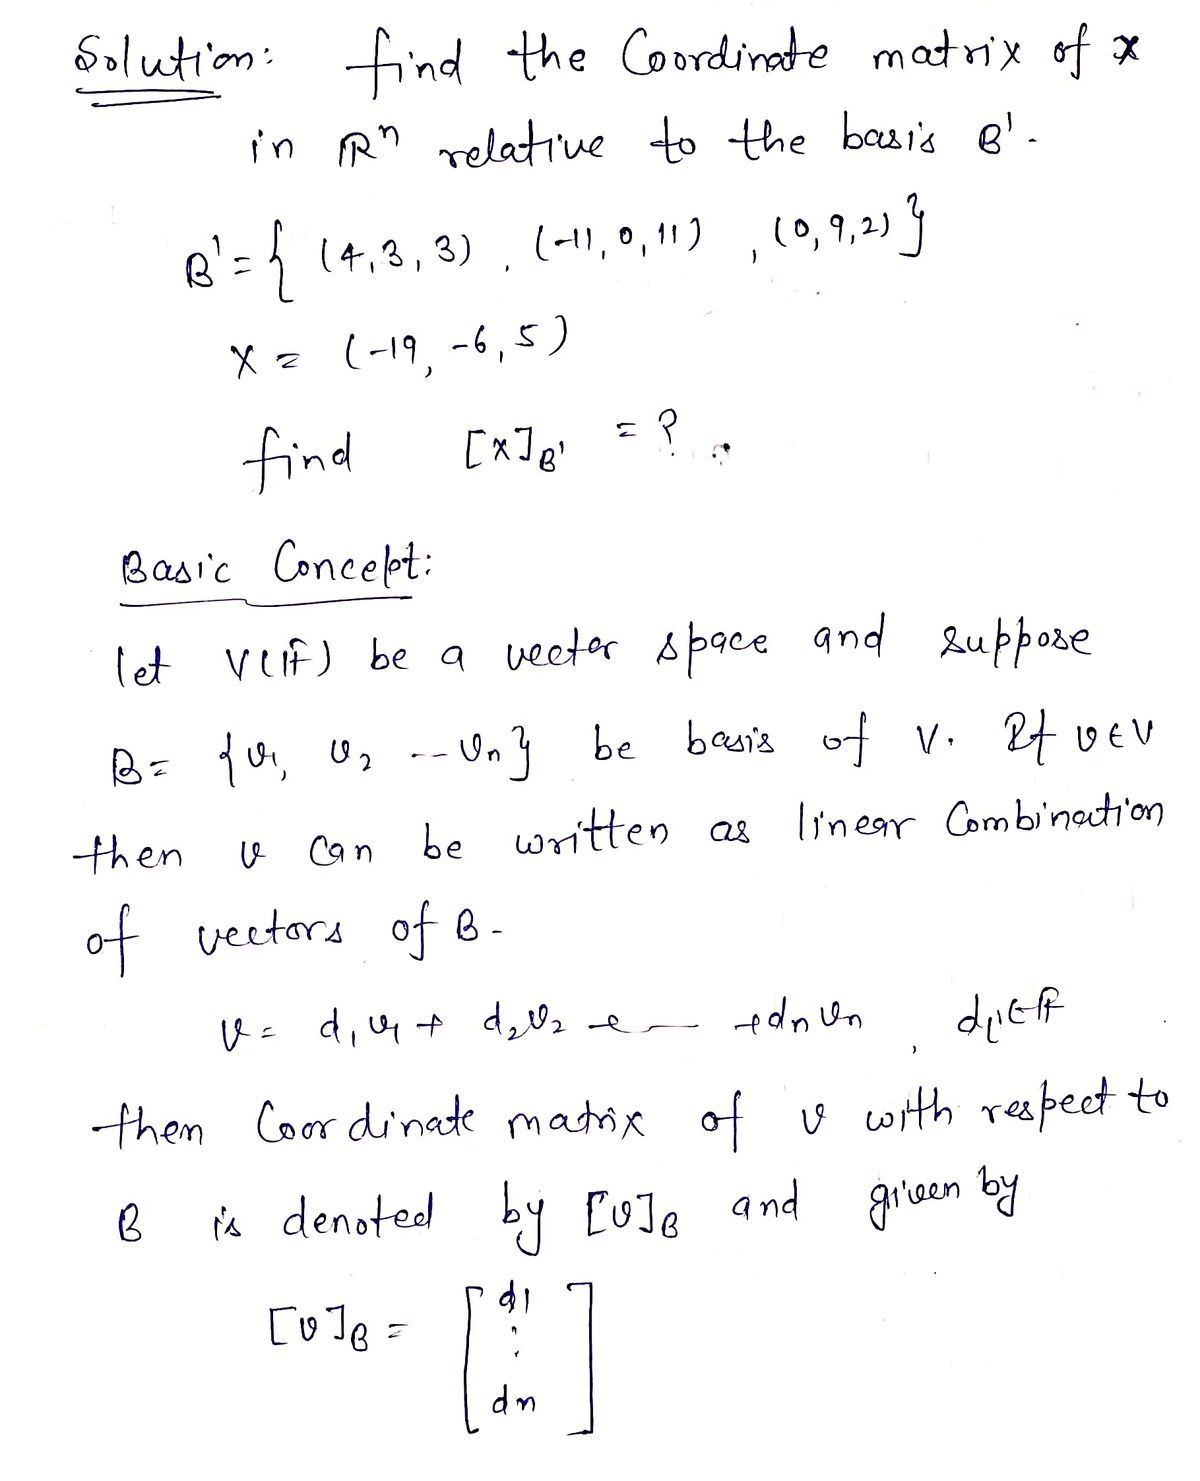 Solution: find the Coordinate matrix of x
in ℝⁿ relative to the basis B'.
B' = { (4,3,3), (-11,0,11), (0,9,2)}
X = (-19, -6, 5)
find [x]B' = ?
Basic Concept:
let V(𝔽) be a vector space and suppose
B = {v₁, v₂ -- vn} be basis of V. If v∈V
then v can be written as linear Combination
of vectors of B-
v = d₁v₁ + d₂v₂ + — +dnvn, di∈𝔽
then Coordinate matrix of v with respect to
B is denoted by [v]B and given by
[v]B = [d1
⋮
dn]